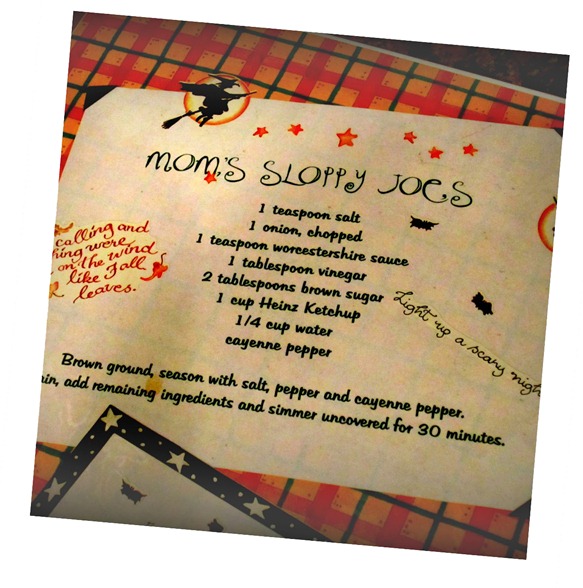 MOM'S SLOPPY JOES
1 teaspoon salt
1 onion, chopped
1 teaspoon worcestershire sauce
1 tablespoon vinegar
2 tablespoons brown sugar
1 cup Heinz Ketchup
1/4 cup water
cayenne pepper
Brown ground, season with salt, pepper and cayenne pepper.
add remaining ingredients and simmer uncovered for 30 minutes.
calling and
were
on the wind
like Fall
leaves.
Light up a scary